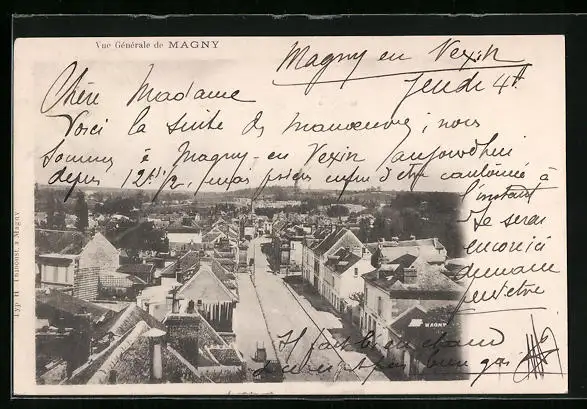 Vue Générale de MAGNY
Magny en Vexin
Jeudi 4 7bre
Chère Madame
Voici la suite des manœuvres; nous
sommes à Magny-en Vexin aujourd'hui
depuis 12h 1/2, mais
d'être cantonné à
l'instant
Je serai
encore ici
demain
peut-être
Il fait bien chaud
MAGNY
Typ H à Magny